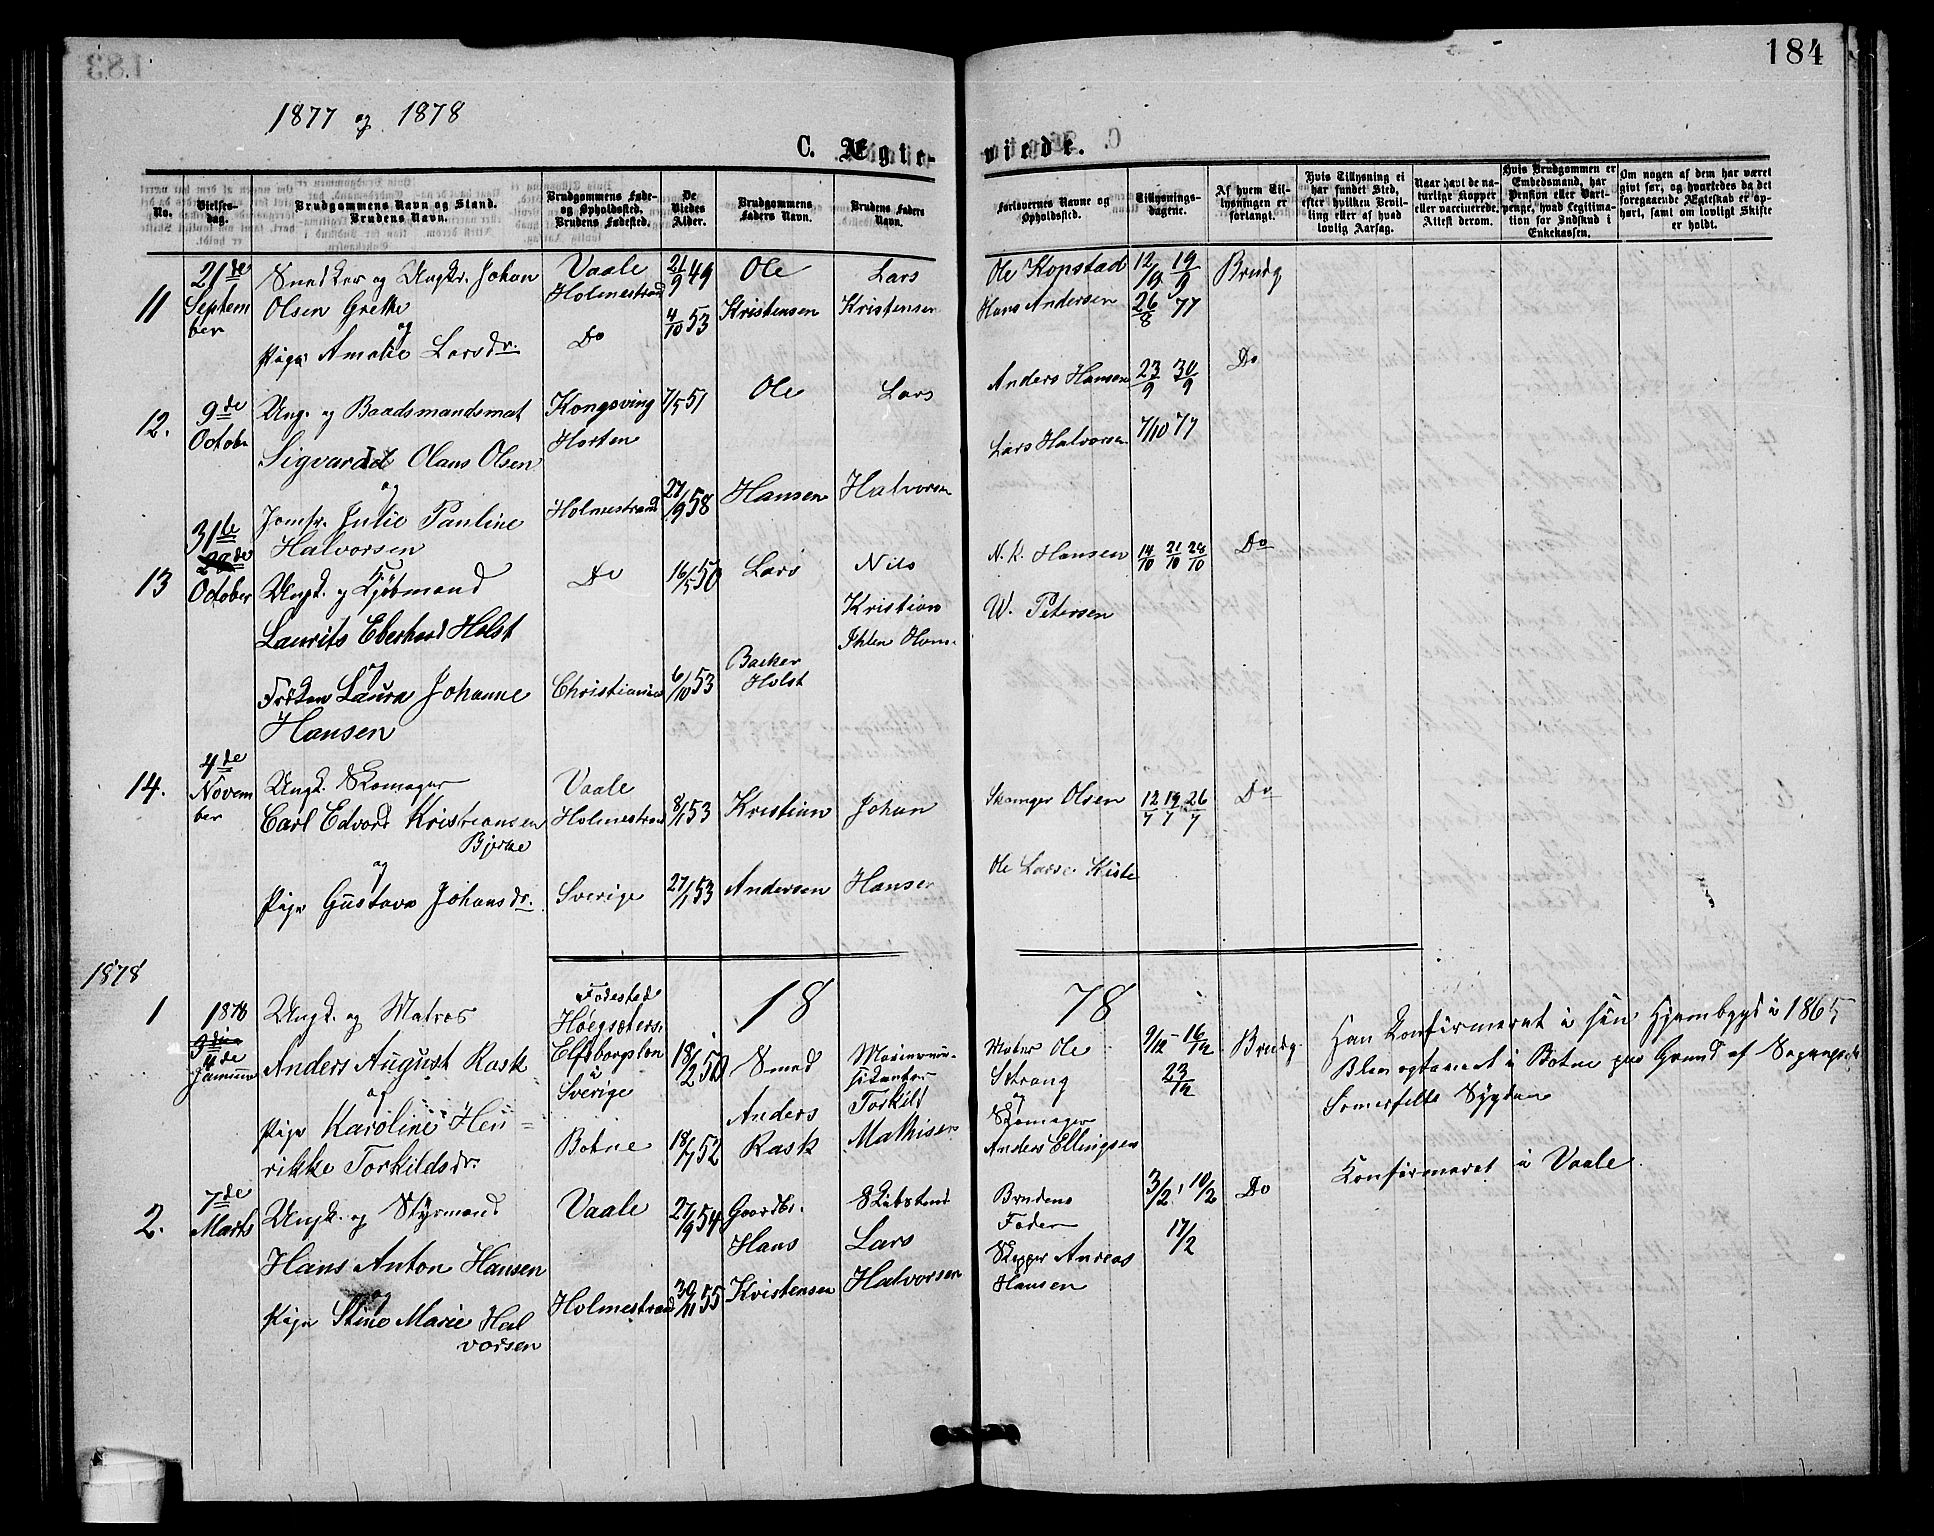 184
1877 og 1878
C. Ægte-
viede.
No.
Vielses-
dag.
Brudgommens Navn og Stand.
Brudens Navn.
Brudgommens Føde-
og Opholdssted.
Brudens Fødested.
De
Viedes
Alder.
Brudgommens
Faders Navn.
Brudens Faders
Navn.
Forlovernes Navne og
Opholdssted.
Tillysnings-
dagene.
Af hvem Til-
lysningen er
forlangt.
Hvis Tillysning ei
har fundet Sted,
efter hvilken Bevil-
ling eller af hvad
lovlig Aarsag.
Naar havt de na-
turlige Kopper
eller vaccinerede.
Attest derom.
Hvis Brudgommen er
Embedsmand, har
Pension eller Vart-
penge, hvad Legitima-
tion for Indskud i
Enkekassen.
Om nogen af dem har været
gift før, og hvorledes da det
foregaaende Ægteskab er op-
hørt, samt om lovligt Skifte
er holdt.
11
21de
Septem
ber
Snedker og Ungkr. Johan
Olsen Grette
og
Pige Amalie Larsdr.
Vaale
Holmestrand
Do
21/9 49
4/10 53
Ole
Kristensen
Lars
Kristensen
Ole Kopstad
Hans Andersen
12/9 19/9
26/8 77
Brudg
12.
9de
Octobr
Ung. og Baadsmandsmat
Sigvardd Olaus Olsen
og
Jomfr. Julie Pauline
Halvorsen
Kongsving
Horten
Holmestrand
7/5 51
27/9 58
Ole
Hansen
Lars
Halvorsen
Anders Hansen
Lars Halvorsen
23/9 30/9
7/10 77
Do
13
31te
October
Ungk. og Kjøbmand
Laurits Eberhard Holst
og
Frøken Laura Johanne
Hansen
Do
Christiania
16/5 50
6/10 53
Lars
Backer
Holst
Nils
Kristian
Ihlen Hans-
N. K. Hansen
W. Petersen
14/10 21/10 28/10
Do
14.
4de
Novem
ber
Ungk. Skomager
Carl Edvard Kristiansen
Bjerke
og
Pige Gustava Johansdr.
Vaale
Holmestrand
Sverige
8/1 53
27/1 53
Kristian
Andersen
Johan
Hansen
Skomager Olsen
Ole Larse Kiste
12/7 19/7 26/7
Do
1878
18
78
1
1878
4de
Januar
Ungk. og Matros
Anders August Rask
og
Pige Karoline Hen=
rikke Torkildsdr.
Fødested
Høegsæters.
Elfsborgslen
i
Sverige
Botne
18/2 50
18/7 52
Smed
Anders
Rask
Torkild
Mathisen
Matros Ole
Strang
og
Skomager
Anders Ellingsen
9/12 – 16/12
23/12
Brudg.
Han Konfirmeret i sin Hjembygd i 1865
Blev optaget i Botne paa Grund af Sogneprest
Somerfelts Sygdom
2.
7de
Marts
Ungk. og Styrmand
Hans Anton Hansen
og
Pige Stine Marie Hal
vorsen
Vaale
Holmestrand
27/9 54
30/11 55
Gaardbr.
Hans
Kristensen
Lars
Halvorsen
Brudens
Fader
Skipper Anreas
Hansen
3/2, 10/2
17/2
Do
Konfirmeret i Vaale.